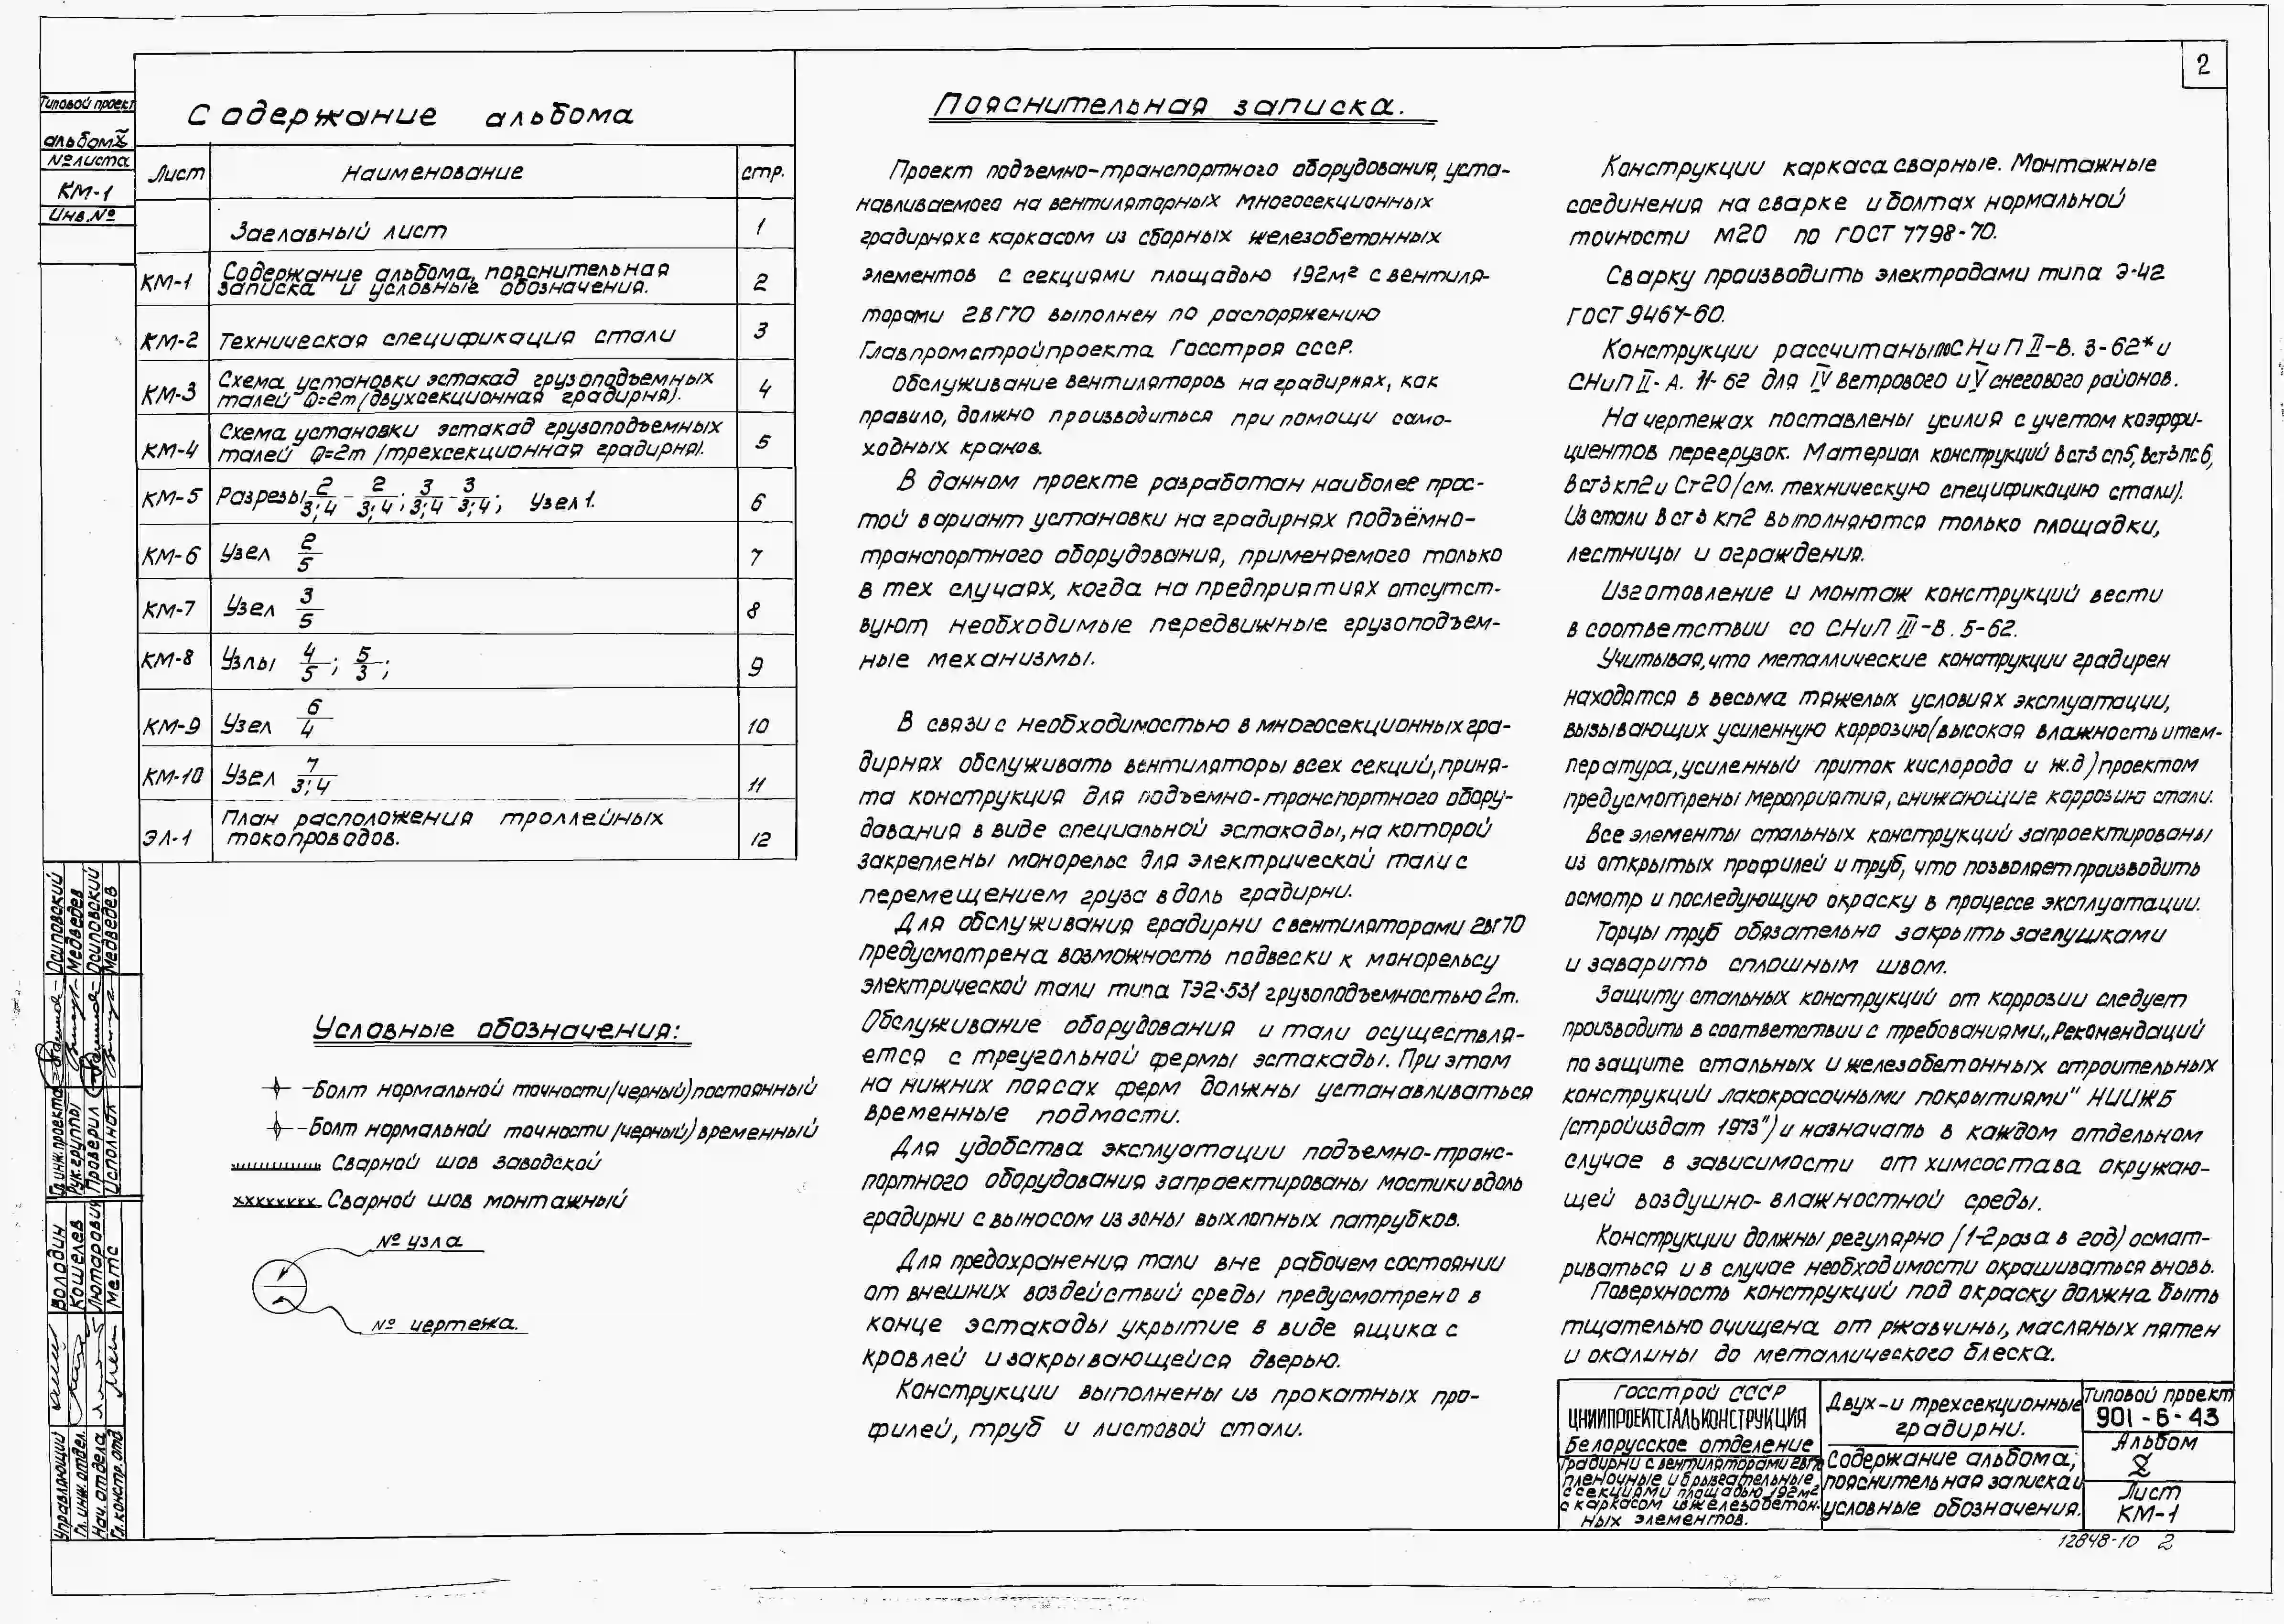 2
Типовой проект
альбом X
№ листа
КМ-1
Инв.№
Содержание альбома
Лист Наименование стр.
Заглавный лист 1
КМ-1 Содержание альбома, пояснительная
записка и условные обозначения. 2
КМ-2 Техническая спецификация стали 3
КМ-3 Схема установки эстакад грузоподъемных
талей Q=2т (двухсекционная градирня). 4
КМ-4 Схема установки эстакад грузоподъемных
талей Q=2т /трехсекционная градирня). 5
КМ-5 Разрезы 2/3;4 - 2/3;4; 3/3;4 - 3/3;4; Узел 1. 6
КМ-6 Узел 2/5 7
КМ-7 Узел 3/5 8
КМ-8 Узлы 4/5; 5/3; 9
КМ-9 Узел 6/4 10
КМ-10 Узел 7/3;4 11
ЭЛ-1 План расположения троллейных
токопроводов. 12
Условные обозначения:
-Болт нормальной точности/черный) постоянный
-Болт нормальной точности /черный) временный
Сварной шов заводской
Сварной шов монтажный
№ узла
№ чертежа.
Пояснительная записка.
Проект подъемно-транспортного оборудования, уста-
навливаемого на вентиляторных многосекционных
градирнях с каркасом из сборных железобетонных
элементов с секциями площадью 192м² с вентиля-
торами 2ВГ70 выполнен по распоряжению
Главпромстройпроекта Госстроя СССР.
Обслуживание вентиляторов на градирнях, как
правило, должно производиться при помощи само-
ходных кранов.
В данном проекте разработан наиболее прос-
той вариант установки на градирнях подъёмно-
транспортного оборудования, применяемого только
в тех случаях, когда на предприятиях отсутст-
вуют необходимые передвижные грузоподъем-
ные механизмы.
В связи с необходимостью в многосекционных гра-
дирнях обслуживать вентиляторы всех секций, приня-
та конструкция для подъемно-транспортного обору-
дования в виде специальной эстакады, на которой
закреплены монорельс для электрической тали с
перемещением груза вдоль градирни.
Для обслуживания градирни с вентиляторами 2ВГ70
предусмотрена возможность подвески к монорельсу
электрической тали типа ТЭ2-531 грузоподъемностью 2т.
Обслуживание оборудования и тали осуществля-
ется с треугольной фермы эстакады. При этом
на нижних поясах ферм должны устанавливаться
временные подмости.
Для удобства эксплуатации подъемно-транс-
портного оборудования запроектированы мостики вдоль
градирни с выносом из зоны выхлопных патрубков.
Для предохранения тали вне рабочем состоянии
от внешних воздействий среды предусмотрено в
конце эстакады укрытие в виде ящика с
кровлей и закрывающейся дверью.
Конструкции выполнены из прокатных про-
филей, труб и листовой стали.
Конструкции каркаса сварные. Монтажные
соединения на сварке и болтах нормальной
точности М20 по ГОСТ 7798-70.
Сварку производить электродами типа Э-42
ГОСТ 9467-60.
Конструкции рассчитаны по СНиП II-В. 3-62* и
СНиП II-А. 11-62 для IV ветрового и V снегового районов.
На чертежах поставлены усилия с учетом коэффи-
циентов перегрузок. Материал конструкций Вст3 сп5, Вст3пс6,
Вст3кп2 и Ст20 /см. техническую спецификацию стали).
Из стали Вст3 кп2 выполняются только площадки,
лестницы и ограждения.
Изготовление и монтаж конструкций вести
в соответствии со СНиП III-В. 5-62.
Учитывая, что металлические конструкции градирен
находятся в весьма тяжелых условиях эксплуатации,
вызывающих усиленную коррозию(высокая влажность и тем-
пература, усиленный приток кислорода и ж.д) проектом
предусмотрены мероприятия, снижающие коррозию стали.
Все элементы стальных конструкций запроектированы
из открытых профилей и труб, что позволяет производить
осмотр и последующую окраску в процессе эксплуатации.
Торцы труб обязательно закрыть заглушками
и заварить сплошным швом.
Защиту стальных конструкций от коррозии следует
производить в соответствии с требованиями „Рекомендаций
по защите стальных и железобетонных строительных
конструкций лакокрасочными покрытиями" НИИЖБ
/стройиздат 1973") и назначать в каждом отдельном
случае в зависимости от химсостава окружаю-
щей воздушно-влажностной среды.
Конструкции должны регулярно (1-2 раза в год) осмат-
риваться и в случае необходимости окрашиваться вновь.
Поверхность конструкций под окраску должна быть
тщательно очищена от ржавчины, масляных пятен
и окалины до металлического блеска.
Госстрой СССР
ЦНИИПРОЕКТСТАЛЬКОНСТРУКЦИЯ
Белорусское отделение
Градирни с вентиляторами 2ВГ70
пленочные и брызгательные
с секциями площадью 192м²
с каркасом из железобетон-
ных элементов.
Двух-и трехсекционные
градирни.
Содержание альбома,
пояснительная записка и
условные обозначения.
Типовой проект
901-6-43
Альбом
X
Лист
КМ-1
12848-10 2
Гл.инж.проекта Осиповский
Рук.группы Медведев
Проверил Осиповский
Исполнил Медведев
Управляющий Володин
Гл.инж.отдел. Кошелев
Нач.отдела Лютарович
Гл.констр.отд Метс